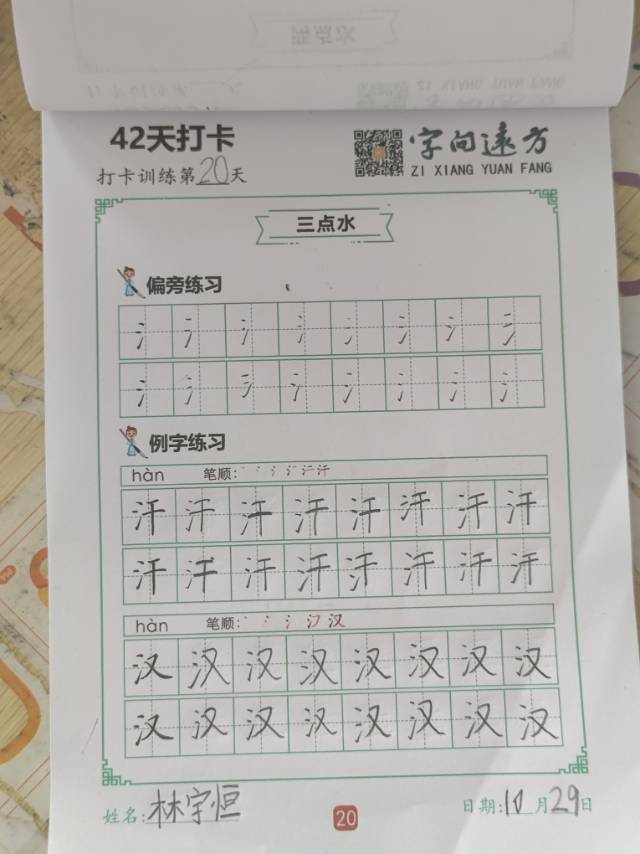 42天打卡
字向远方
打卡训练第20天
ZI XIANG YUAN FANG
三点水
偏旁练习
氵氵氵氵氵氵氵氵
氵氵氵氵氵氵氵氵
例字练习
hàn 笔顺:
汗汗汗汗汗汗汗汗
汗汗汗汗汗汗汗汗
hàn 笔顺: 汉
汉汉汉汉汉汉汉汉
汉汉汉汉汉汉汉汉
姓名:林宇恒 20 日期:10月29日